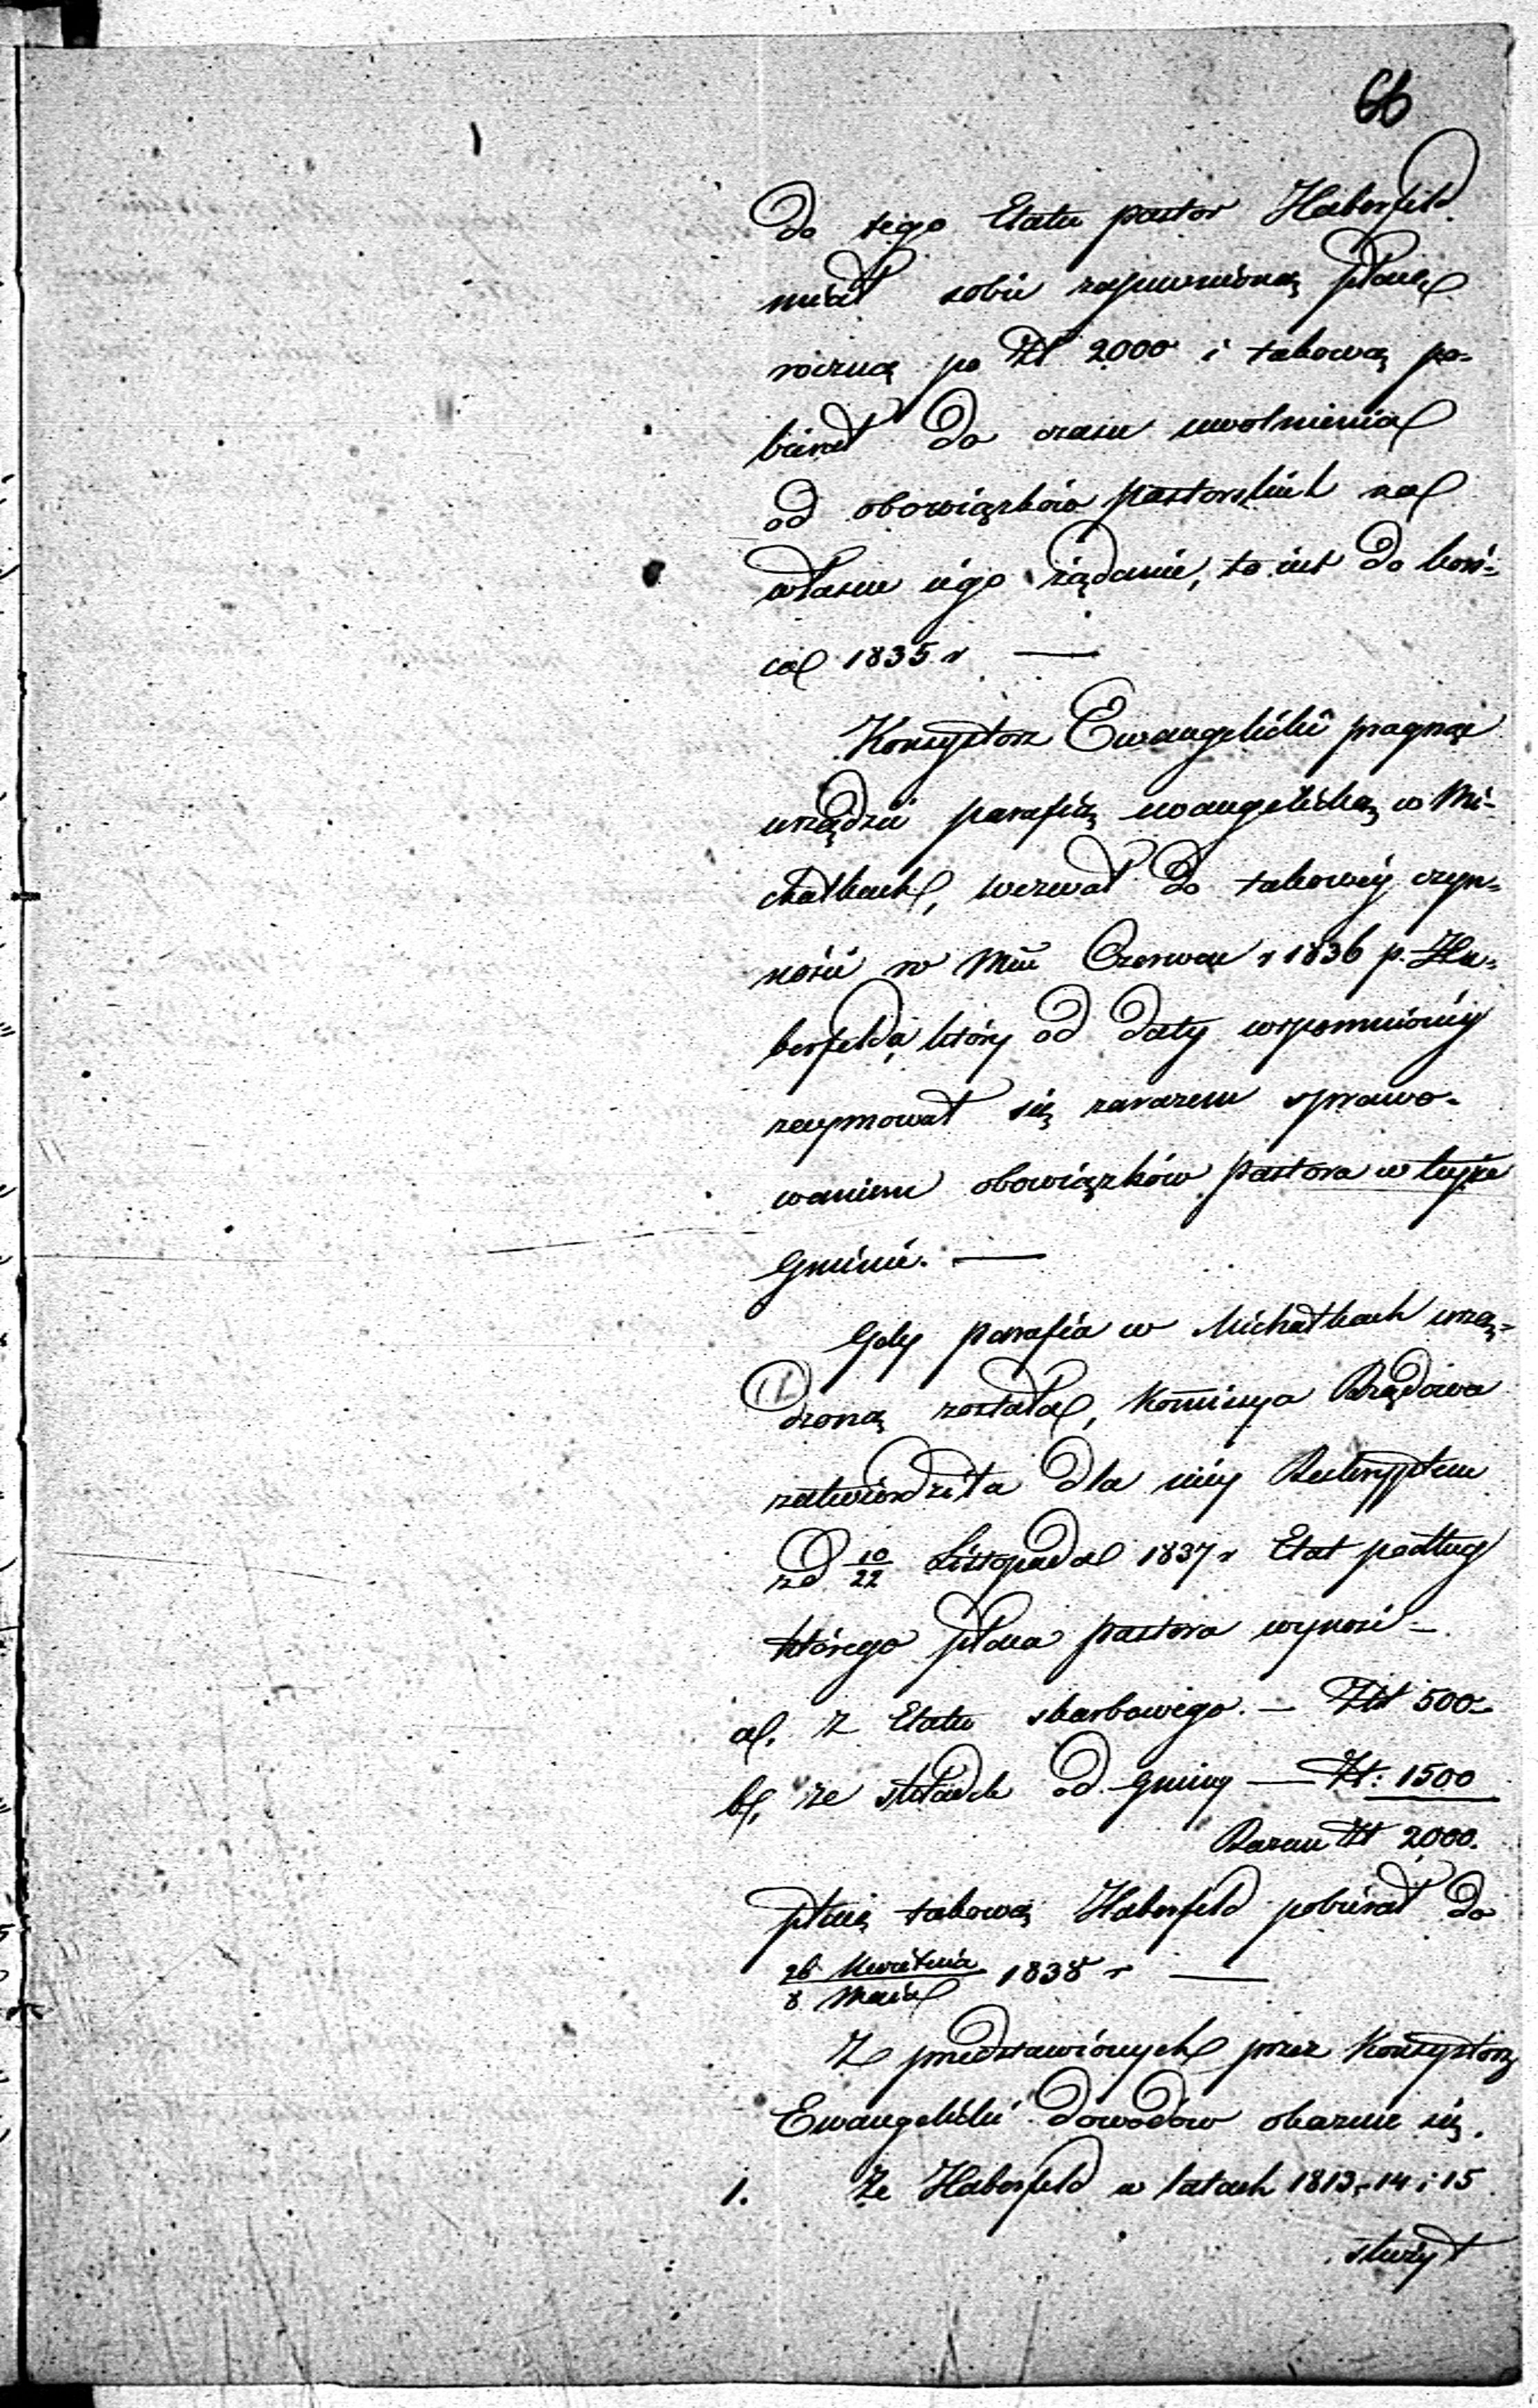 66
do tego Etatu pastor Haberfeld
miał sobie zapewnioną płacę
roczną po Zł 2000 i takową po-
bierał do czasu uwolnienia
od obowiązków pastorskich na
własne iego żądanie, to iest do koń-
ca 1835 r —
Konsystorz Ewangelicki pragnąc
urządzić parafią ewangelicką w Mi-
chałkach, wezwał do takowey czyn-
ności w Mcu Czerwcu r 1836 p. Ha-
berfelda, który od daty wspomnioney
zaymował się zarazem sprawo-
waniem obowiązków pastora w teyże
Gminie. —
Gdy parafia w Michałkach urzą-
dzoną została, Kommissya Rządowa
zatwierdziła dla niey Reskryptem
zd 10/22 Listopada 1837 r Etat podług
którego płaca pastora wynosi -
a, z Etatu skarbowego. — Złt 500 -
b, ze składek od gminy — Zł: 1500
Razem Zł 2000.
płacę takową Haberfeld pobierał do
26 Kwietnia / 8 Maia 1838 r —
Z przedstawionych przez Konsystorz
Ewangelicki dowodów okazuie się.
1. Że Haberfeld w latach 1813, 14 i 15
służył